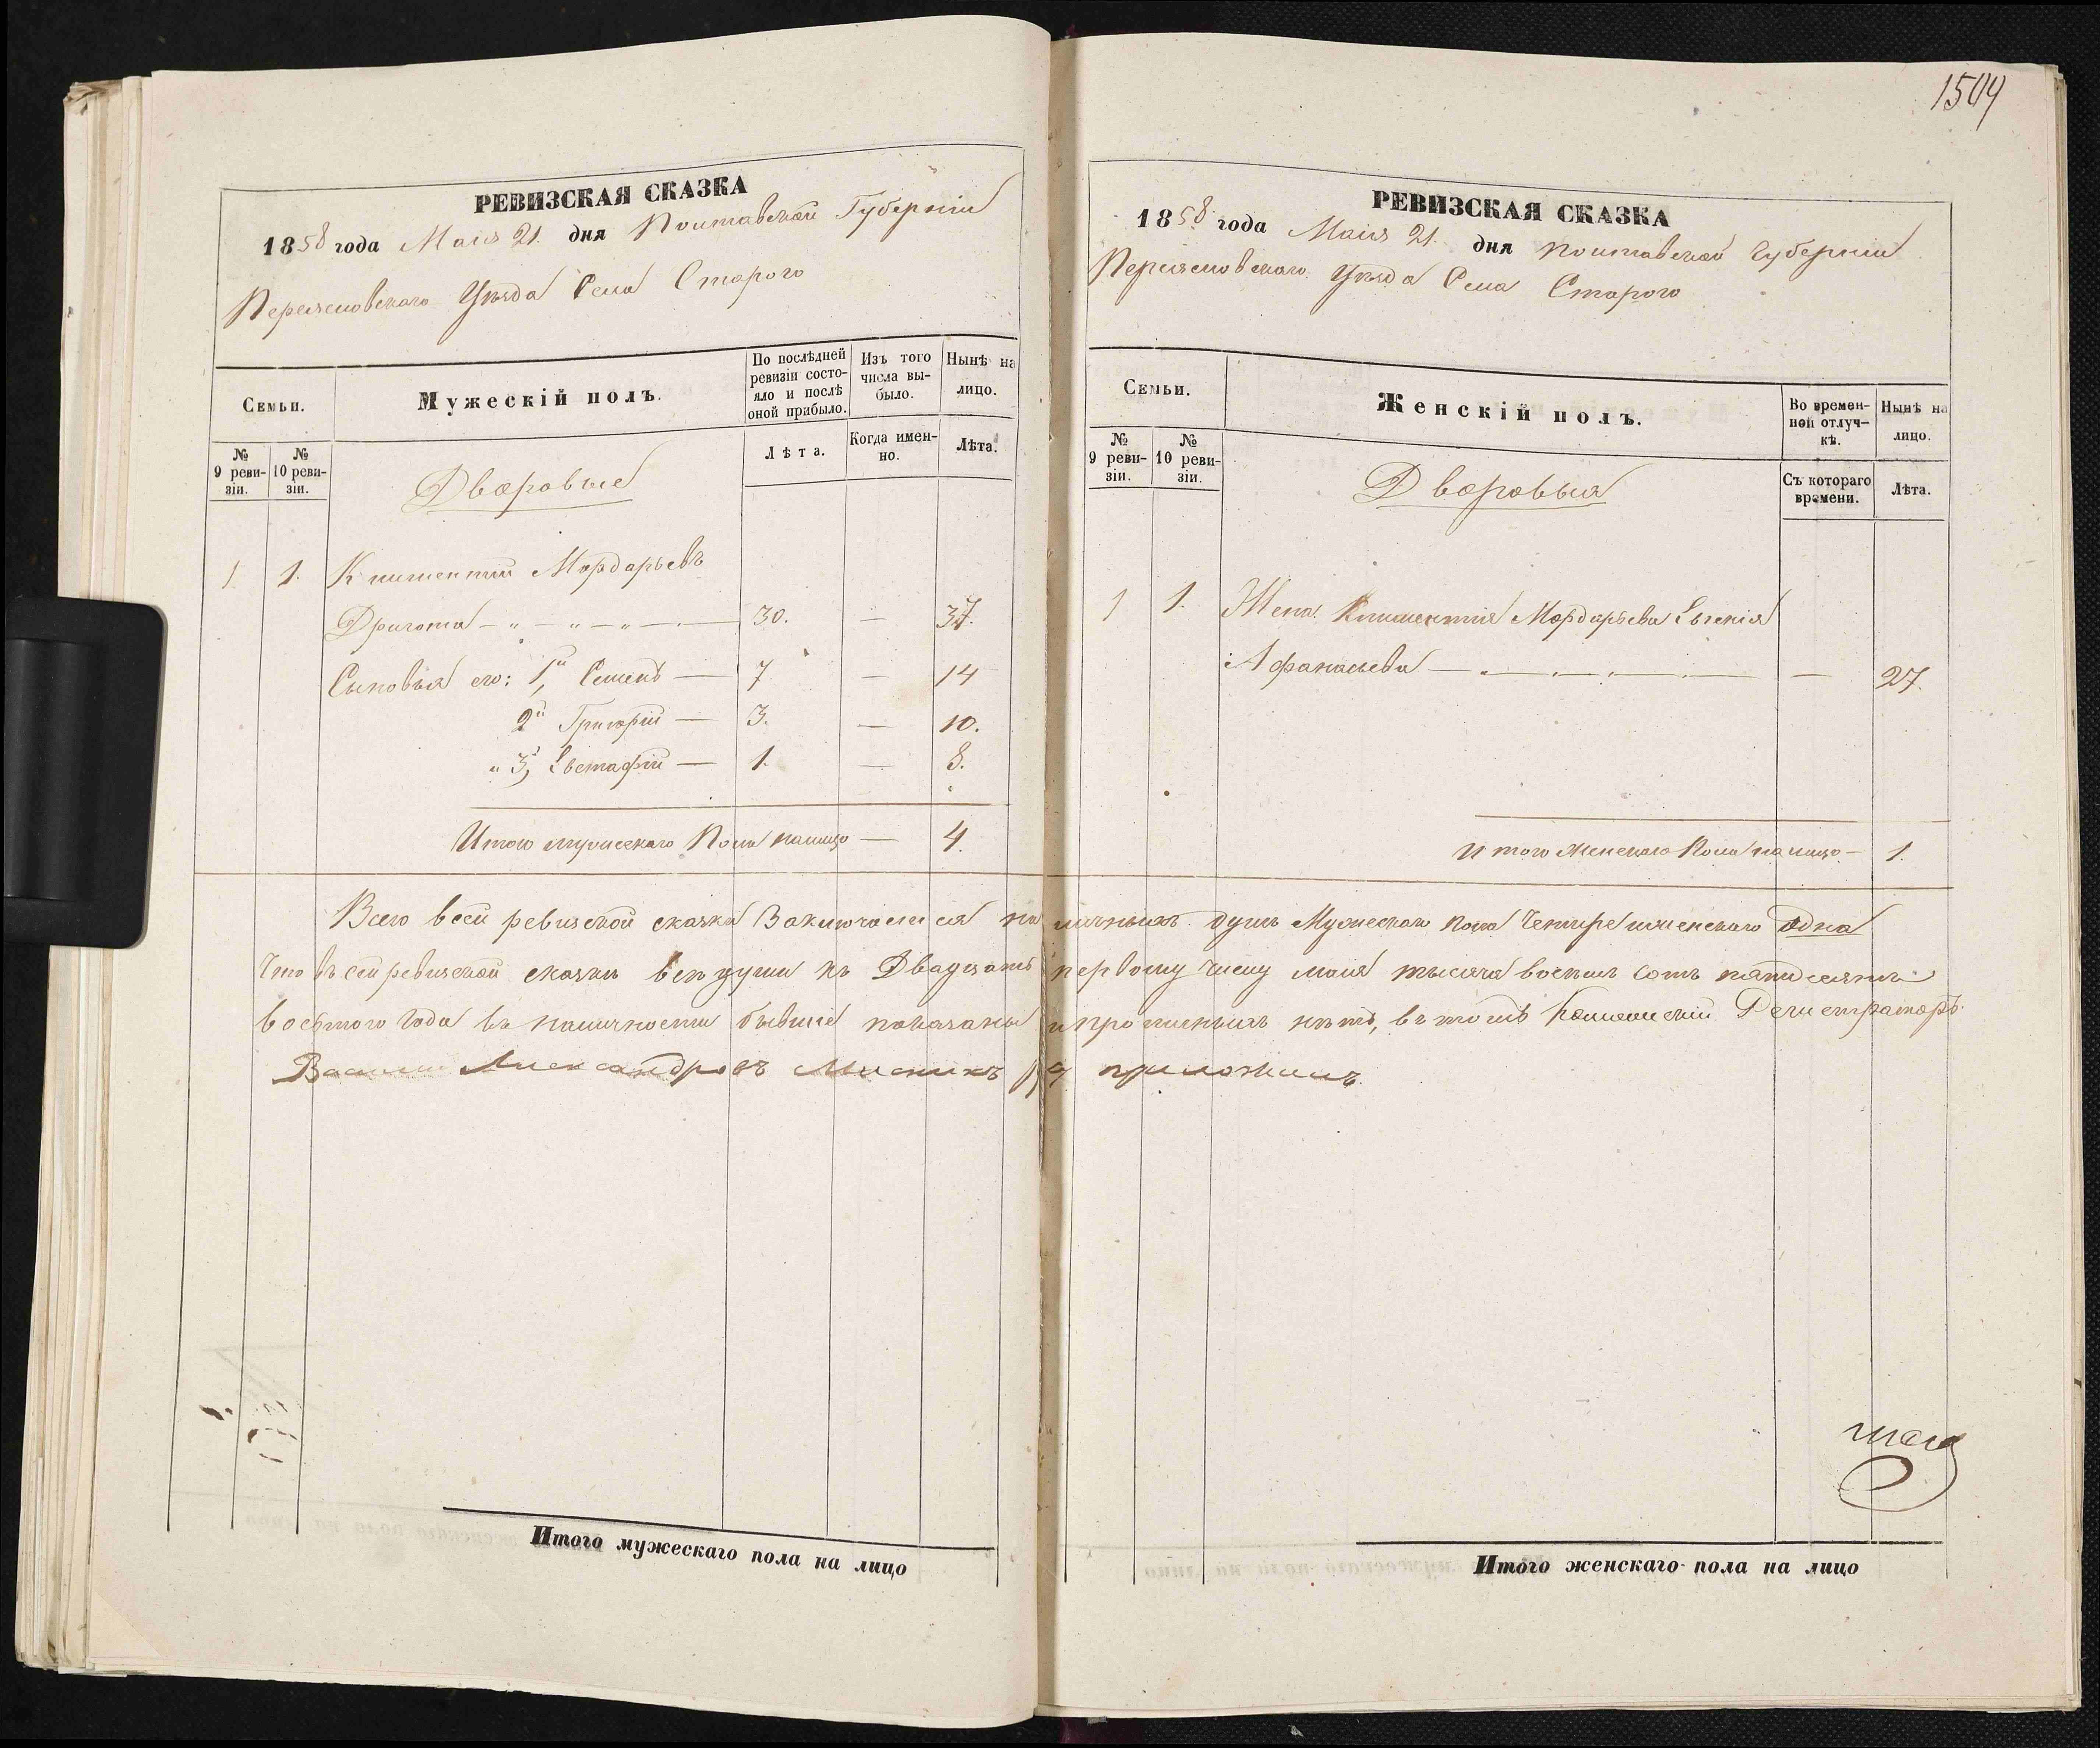 1504
РЕВИЗСКАЯ СКАЗКА
1858 года Маия 21. дня Полтавской Губерніи
Переяславского Уѣзда Села Старого
Семьи.
Мужескій полъ.
По послѣдней ревизіи состояло и послѣ оной прибыло.
Изъ того числа выбыло.
Нынѣ на лицо.
№ 9 ревизіи.
№ 10 ревизіи.
Лѣта.
Когда именно.
Лѣта.
Дворовые
1 1. Климентий Мордарьевъ
Дригота — " — " — " — 30. — 37.
Сыновья его: 1й, Семенъ — 7 — 14
2й Григорій — 3. — 10.
" 3й, Евстафій — 1. — 8.
Итого мужескаго Пола налицо — 4.
РЕВИЗСКАЯ СКАЗКА
1858 года Маия 21. дня Полтавской Губерніи
Переяславскаго Уѣзда Села Старого
Семьи.
Женскій полъ.
Во временной отлучкѣ.
Нынѣ на лицо.
№ 9 ревизіи.
№ 10 ревизіи.
Съ котораго времени.
Лѣта.
Дворовыя
1 1. Жена Климентія Мордарьева Евгенія
Афанасьева — 27.
Итого женскаго Пола налицо — 1.
Всего в сей ревизской сказкѣ Заключается наличныхъ душъ Мужескаго пола Четире и женскаго одна
Что въ сей ревизской сказкѣ всѣ души къ Двадцать первому числу маия тысяча восемь сотъ пятдесятъ
восьмого года въ наличности бывшіе показаны и прописныхъ нѣтъ, въ томъ Коллежскій Регистраторъ
Василий Александровъ руку приложилъ.
Итого мужескаго пола на лицо
Итого женскаго пола на лицо